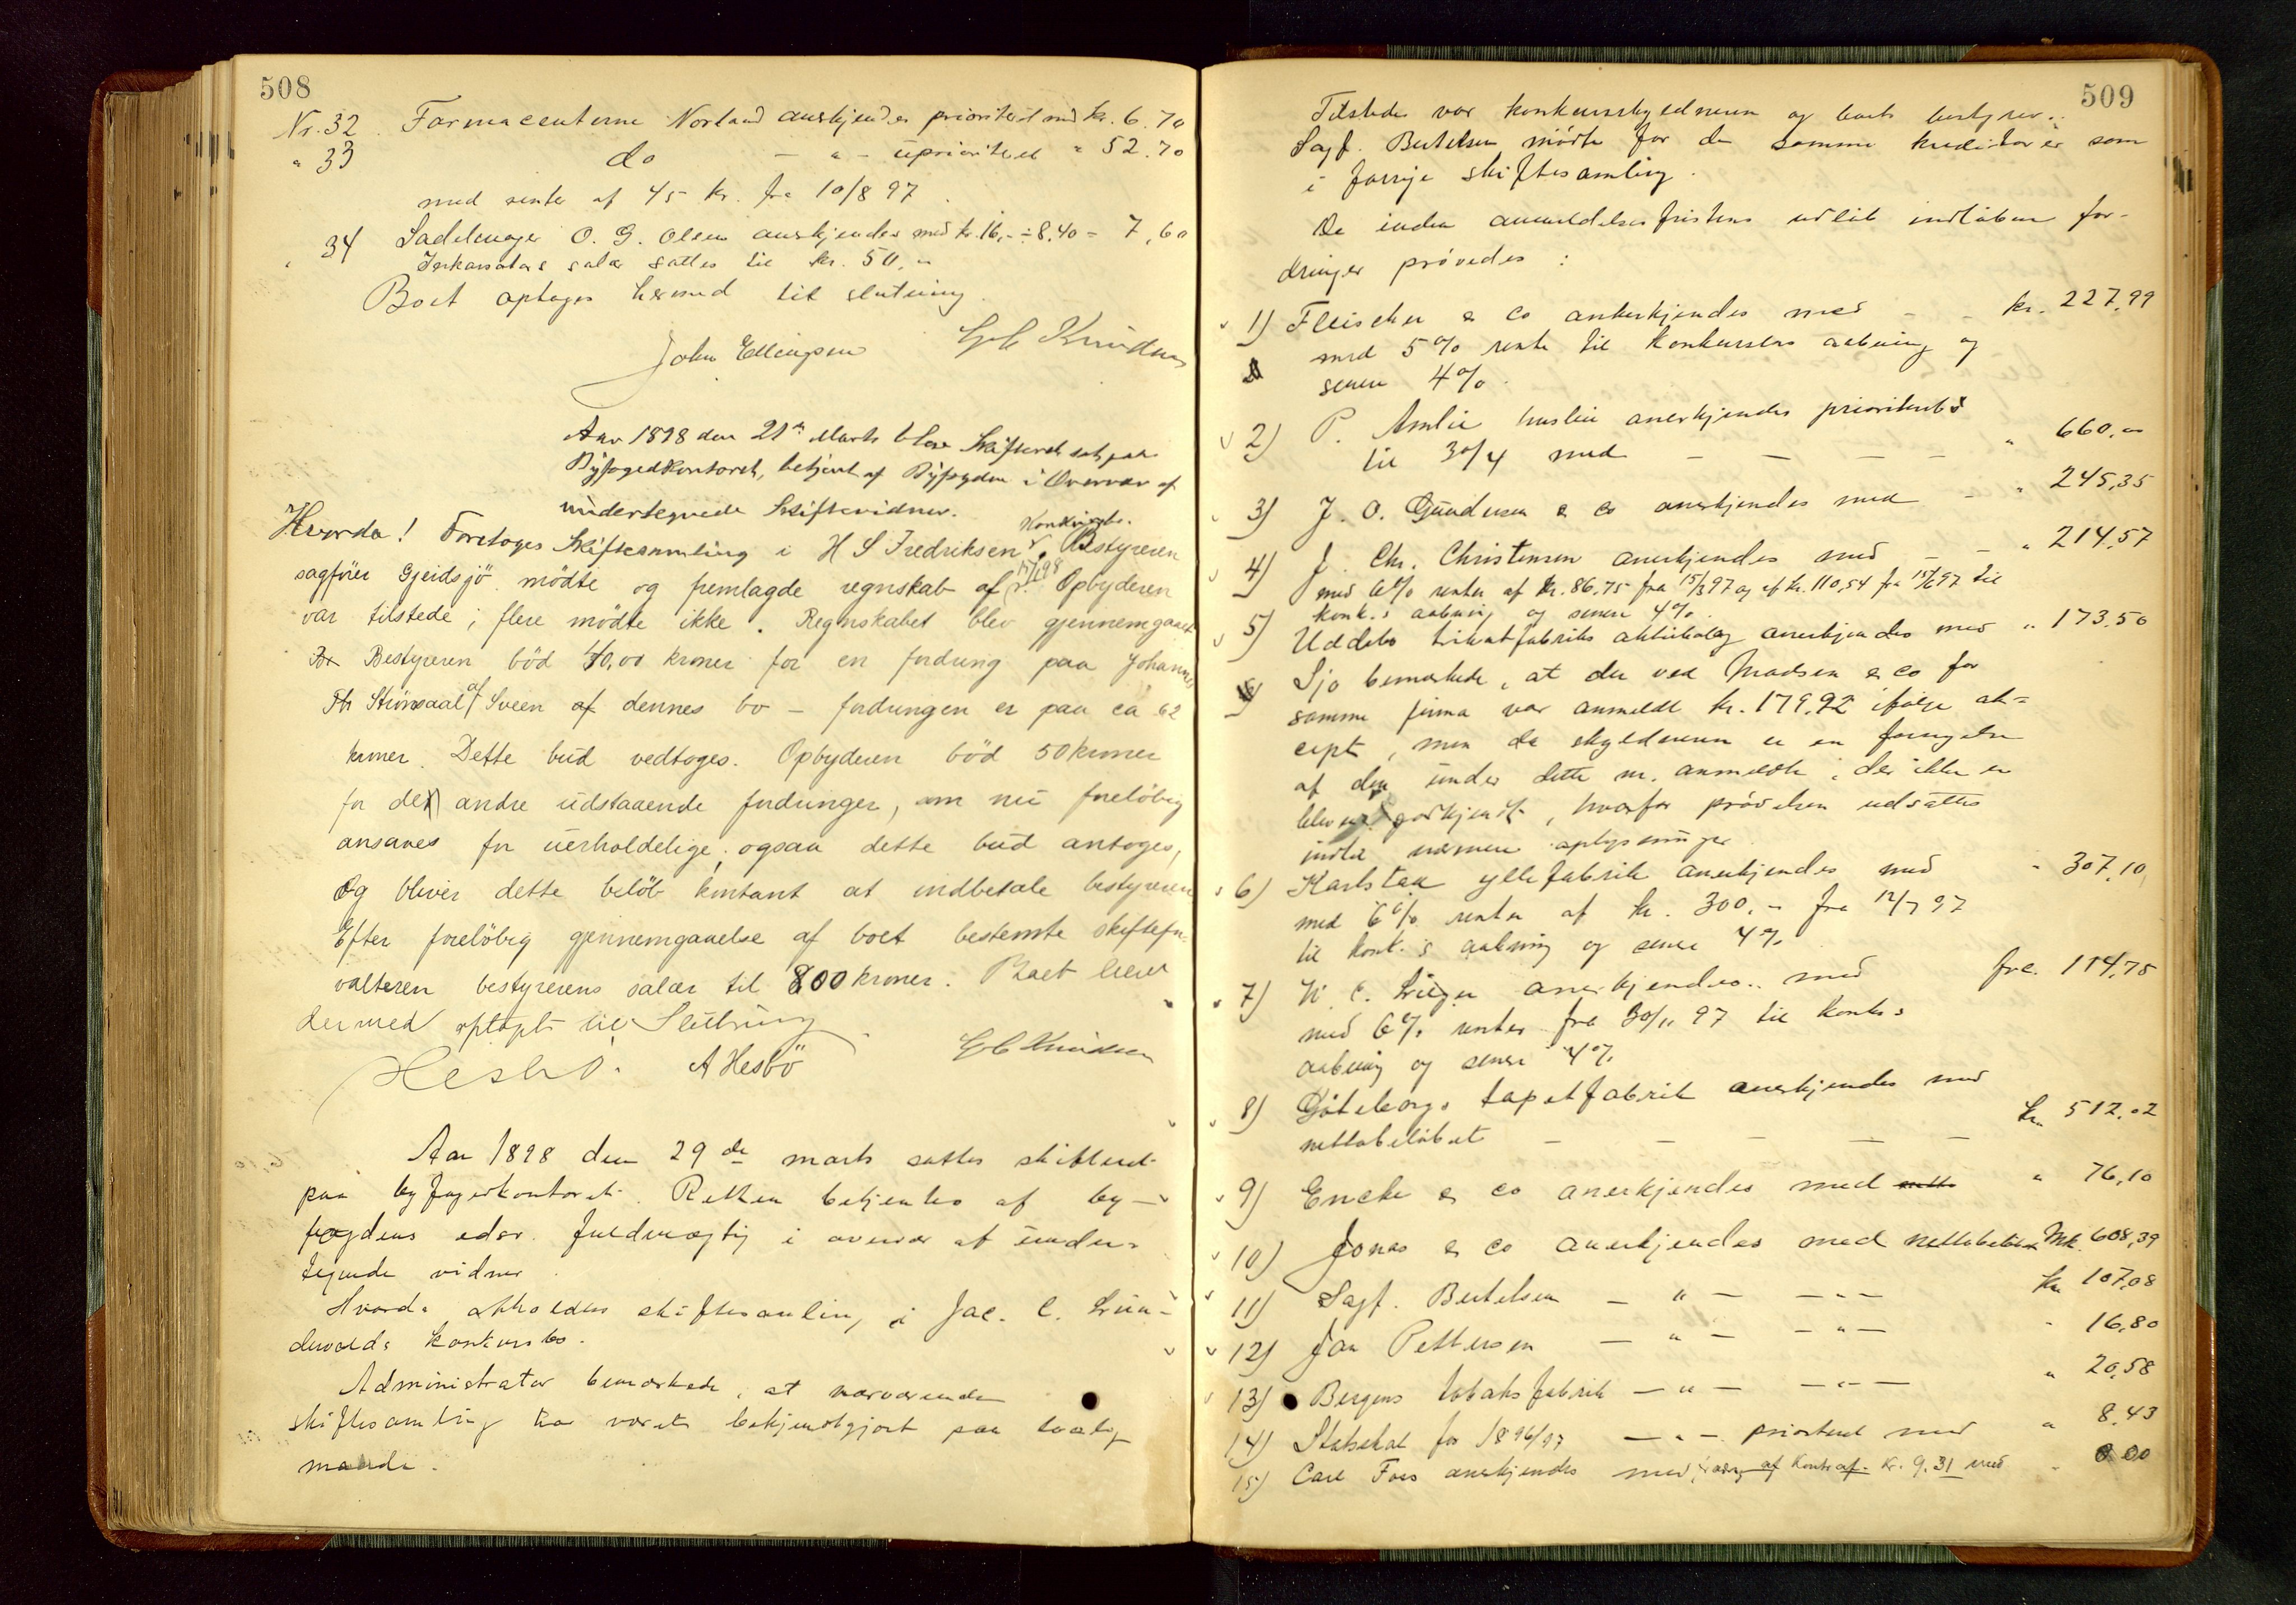 508
Nr. 32. Farmaceuterne Norland anerkjendes prioriteret med kr. 6.70
" 33 do - " - uprioriteret " 52.70
med renter af 45 kr. fra 10/8 97.
" 34 Sadelmager O. G. Olsen anerkjendes med kr. 16,- ÷ 8,40 = 7,60
Inkassators salær sattes til kr. 50,"
Boet optages hermed til slutning.
John Ellingsen Knudsen
Aar 1898 den 21de Marts blev Skifteret sat paa
Byfogedkontoret, betjent af Byfogden i Overvær af
undertegnede Skiftevidner.
Hvorda! Foretoges Skiftesamling i H S Fredriksens Konkursbo. Bestyreren
sagfører Gjeidsjö mödte og fremlagde regnskab af d. 17/1 98. Opbyderen
var tilstede; flere mödte ikke. Regnskabet blev gjennemgaaet
Bestyreren böd 40,00 kroner for en fordring paa Johannes
Th Strönsaal af Sveen af dennes bo - fordringen er paa ca 62
kroner. Dette bud vedtoges. Opbyderen böd 50 kroner
for de andre udstaaende fordringer, som nu foreløbig
ansaaes for uerholdelige; ogsaa dette bud antoges,
Og bliver dette belöb kontant at indbetale bestyreren
Efter forelöbig gjennemgaaelse af boet bestemte skiftefor-
valteren bestyrerens salær til 800 kroner. Boet blev
dermed optaget til Slutning
Hesbö. A Hesbö Knudsen
Aar 1898 den 29de marts sattes skifteret
paa byfogedkontoret. Retten betjentes af by-
fogdens edsv. fuldmægtig i overvær af under-
tegnede vidner.
Hvorda afholdtes skiftesamling i Jac. C. Lun-
dewalds konkursbo.
Administrator bemærkede, at nærværende
skiftesamling har været bekjendtgjort paa lovlig
maade.
509
Tilstede var konkursskyldneren og boets bestyrer.
Sagf. Bertelsen mødte for de samme kreditorer som
i forrige skiftesamling.
De inden anmeldelsesfristens udløb indløbne for-
dringer prövedes:
1) Fleischer & co anerkjendes med - - kr. 227,99
med 5% rente til konkursens aabning og
senere 4%.
2) P. Amlie husleie anerkjendes prioriteret
til 30/4 med - - - - " 660,"
3) J. O. Gundersen & co anerkjendes med - " 245,35
4) J. Chr. Christensen anerkjendes med - - " 214,57
med 6% renter af kr. 86.75 fra 15/3 97 og af kr. 110,54 fra 15/6 97 til
konk.s aabning og senere 4%.
5) Uddebo trikotfabriks aktiebolag anerkjendes med " 173,50
Sjo bemærkede, at der ved Madsen & co for
samme firma var anmeldt kr. 179.92 ifølge ak-
cept, men da skyldneren er en fornyelse
af den under dette nr. anmeldte, der ikke er
bleven godkjendt, hvorfor prövelsen udsættes
indtil nærmere oplysninger.
6) Karlstad yllefabrik anerkjendes med " 307,10
med 6% renter af kr. 300.- fra 12/7 97
til konk.s aabning og senere 4%.
7) W. C. anerkjendes med frc. 114,75
med 6% renter fra 30/11 97 til konk.s
aabning og senere 4%
8) Göteborgs tapetfabrik anerkjendes med
nettobeløbet - - - - - kr. 512.02
9) Encke & co anerkjendes med netto " 76,10
10) Jonas & co anerkjendes med nettobeløbet Mk. 608,39
11) Sagf. Bertelsen - " - - " - kr. 107,08
12) Jan Pettersen - " - - " - " 16,80
13) Bergens tobaksfabrik - " - - " - " 20,58
14) Statsskat for 1896/97 - " - prioriteret med " 8,43
15) Carl Foss anerkjendes med af kr. 9.31 med " 8 00